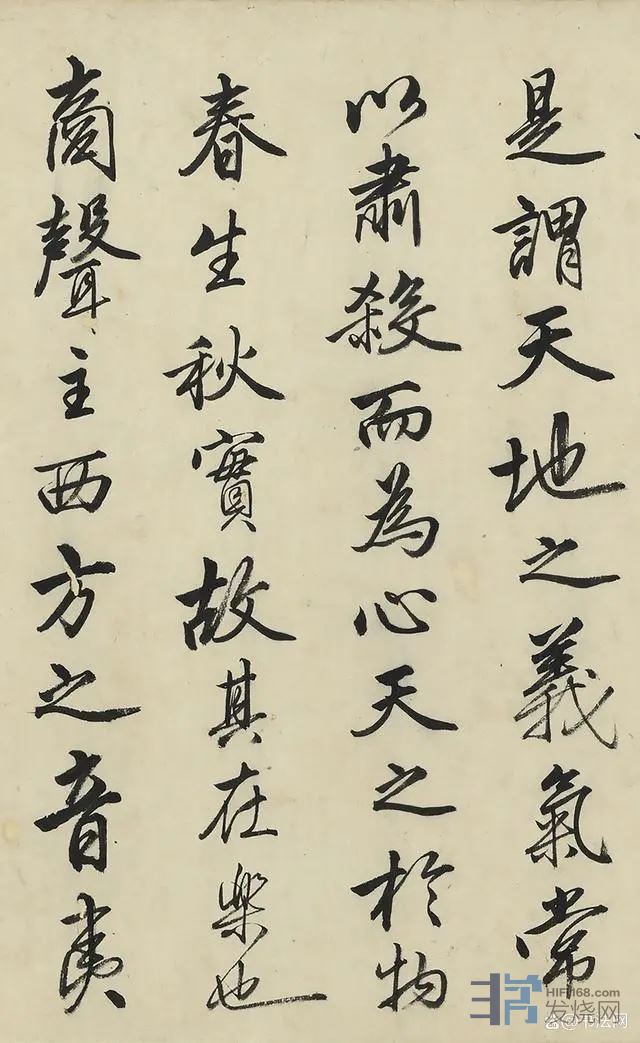 是謂天地之義氣常
以肅殺而為心天之於物
春生秋實故其在樂也
商聲主西方之音夷
HIFI168.com
发烧网
书法网